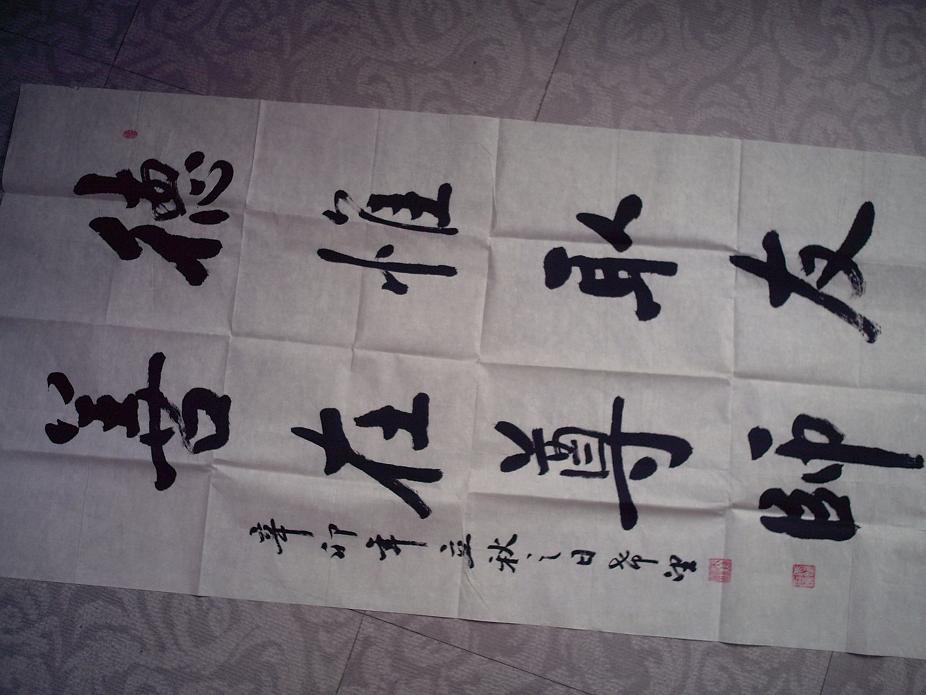 德惟取友
善在尊師
辛卯年立秋之日